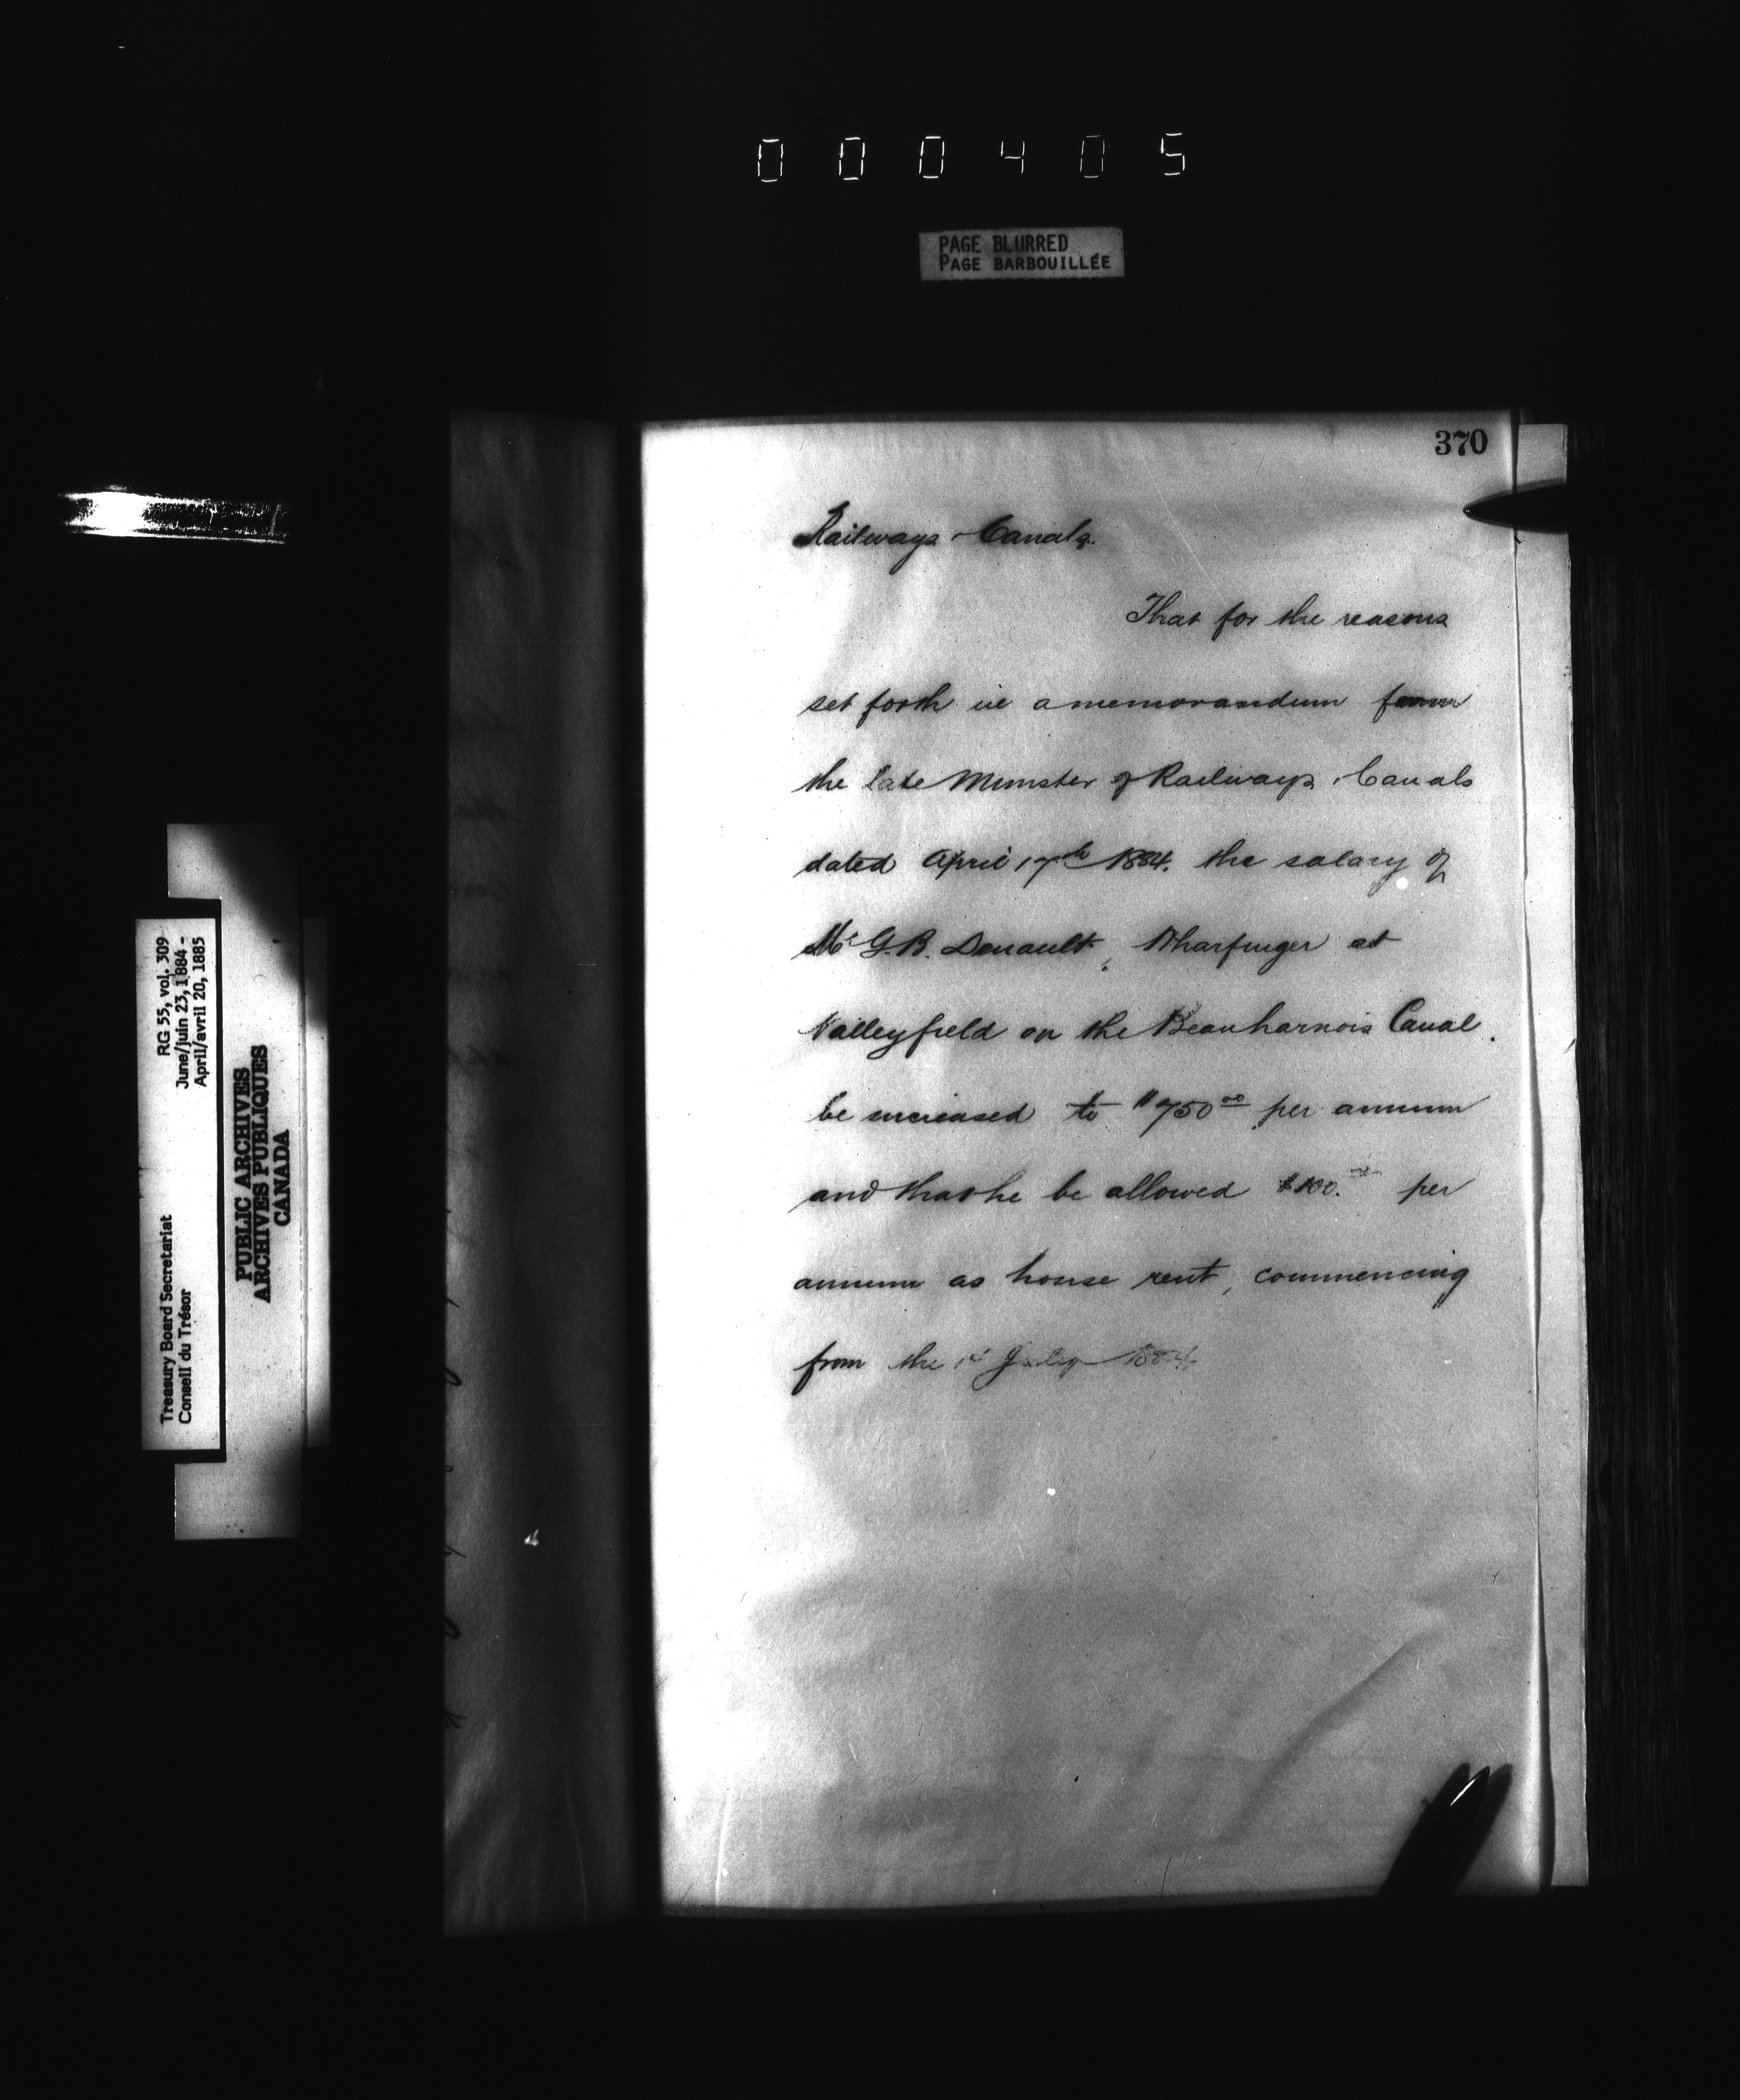 000405
PAGE BLURRED
PAGE BARBOUILLÉE
370
Railways & Canals.
That for the reasons
set forth in a memorandum from
the late Minister of Railways & Canals
dated April 17th 1884. the salary of
Mr G.B. Denault, Wharfinger at
Valleyfield on the Beauharnois Canal.
be increased to $750 00 per annum
and that he be allowed $100. 00 per
annum as house rent, commencing
from the 1st July 1884.
RG 55, vol. 309
June/juin 23, 1884 -
April/avril 20, 1885
Treasury Board Secretariat
Conseil du Trésor
PUBLIC ARCHIVES
ARCHIVES PUBLIQUES
CANADA